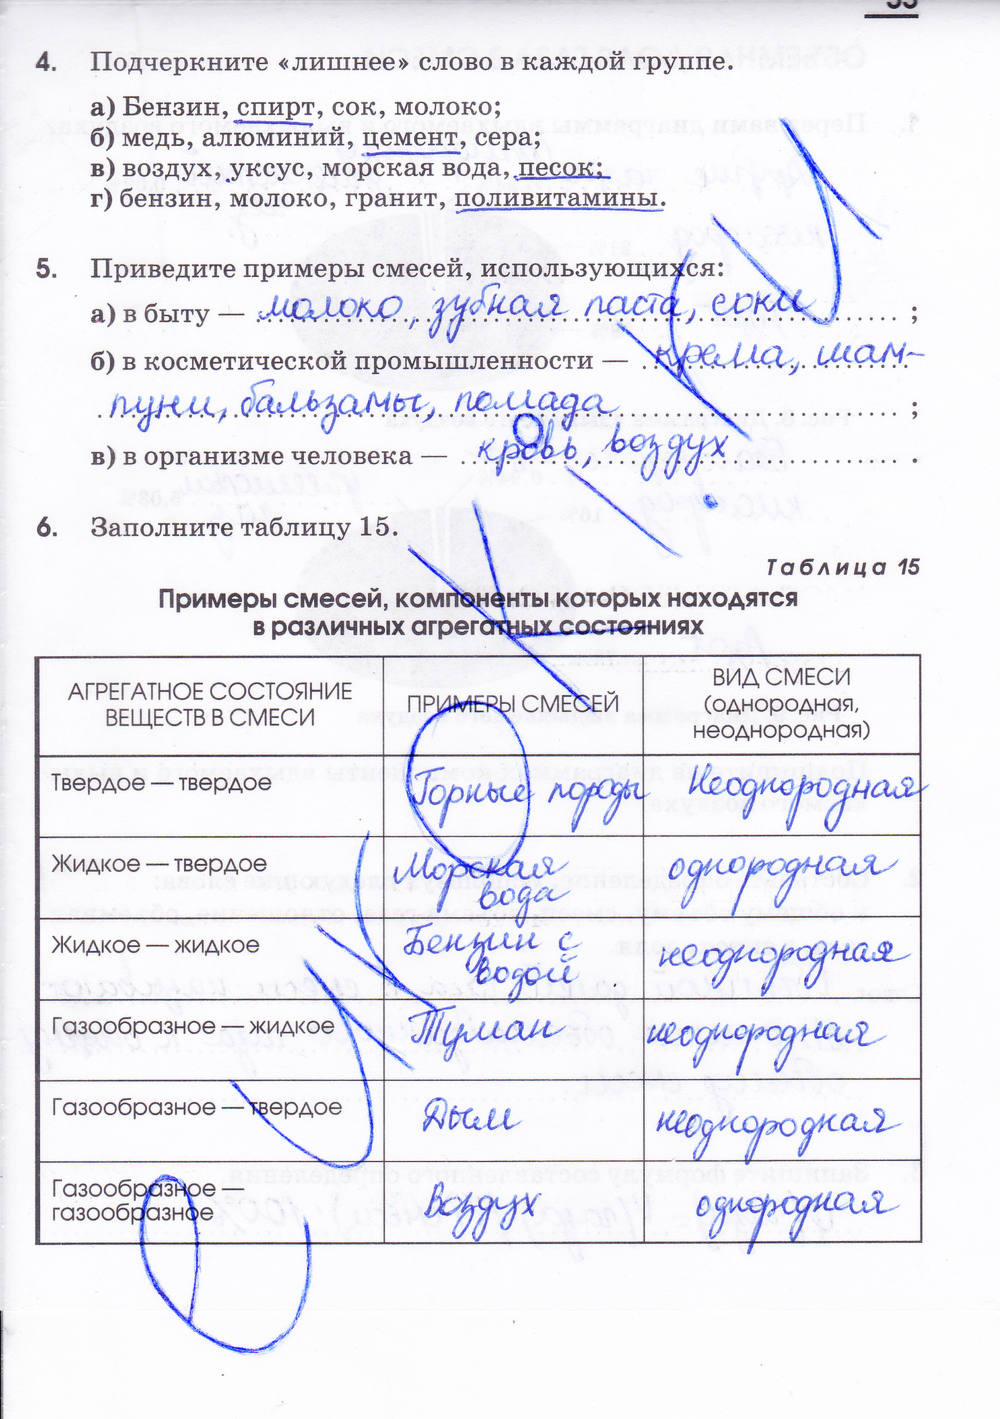 4. Подчеркните «лишнее» слово в каждой группе.
а) Бензин, спирт, сок, молоко;
б) медь, алюминий, цемент, сера;
в) воздух, уксус, морская вода, песок;
г) бензин, молоко, гранит, поливитамины.
5. Приведите примеры смесей, использующихся:
а) в быту — молоко, зубная паста, соки ;
б) в косметической промышленности — крема, шам-
пуни, бальзамы, помада ;
в) в организме человека — кровь, воздух .
6. Заполните таблицу 15.
Таблица 15
Примеры смесей, компоненты которых находятся
в различных агрегатных состояниях
АГРЕГАТНОЕ СОСТОЯНИЕ
ВЕЩЕСТВ В СМЕСИ
ПРИМЕРЫ СМЕСЕЙ
ВИД СМЕСИ
(однородная,
неоднородная)
Твердое — твердое Горные породы Неоднородная
Жидкое — твердое Морская
вода
однородная
Жидкое — жидкое Бензин с
водой
неоднородная
Газообразное — жидкое Туман неоднородная
Газообразное — твердое Дым неоднородная
Газообразное —
газообразное
Воздух однородная